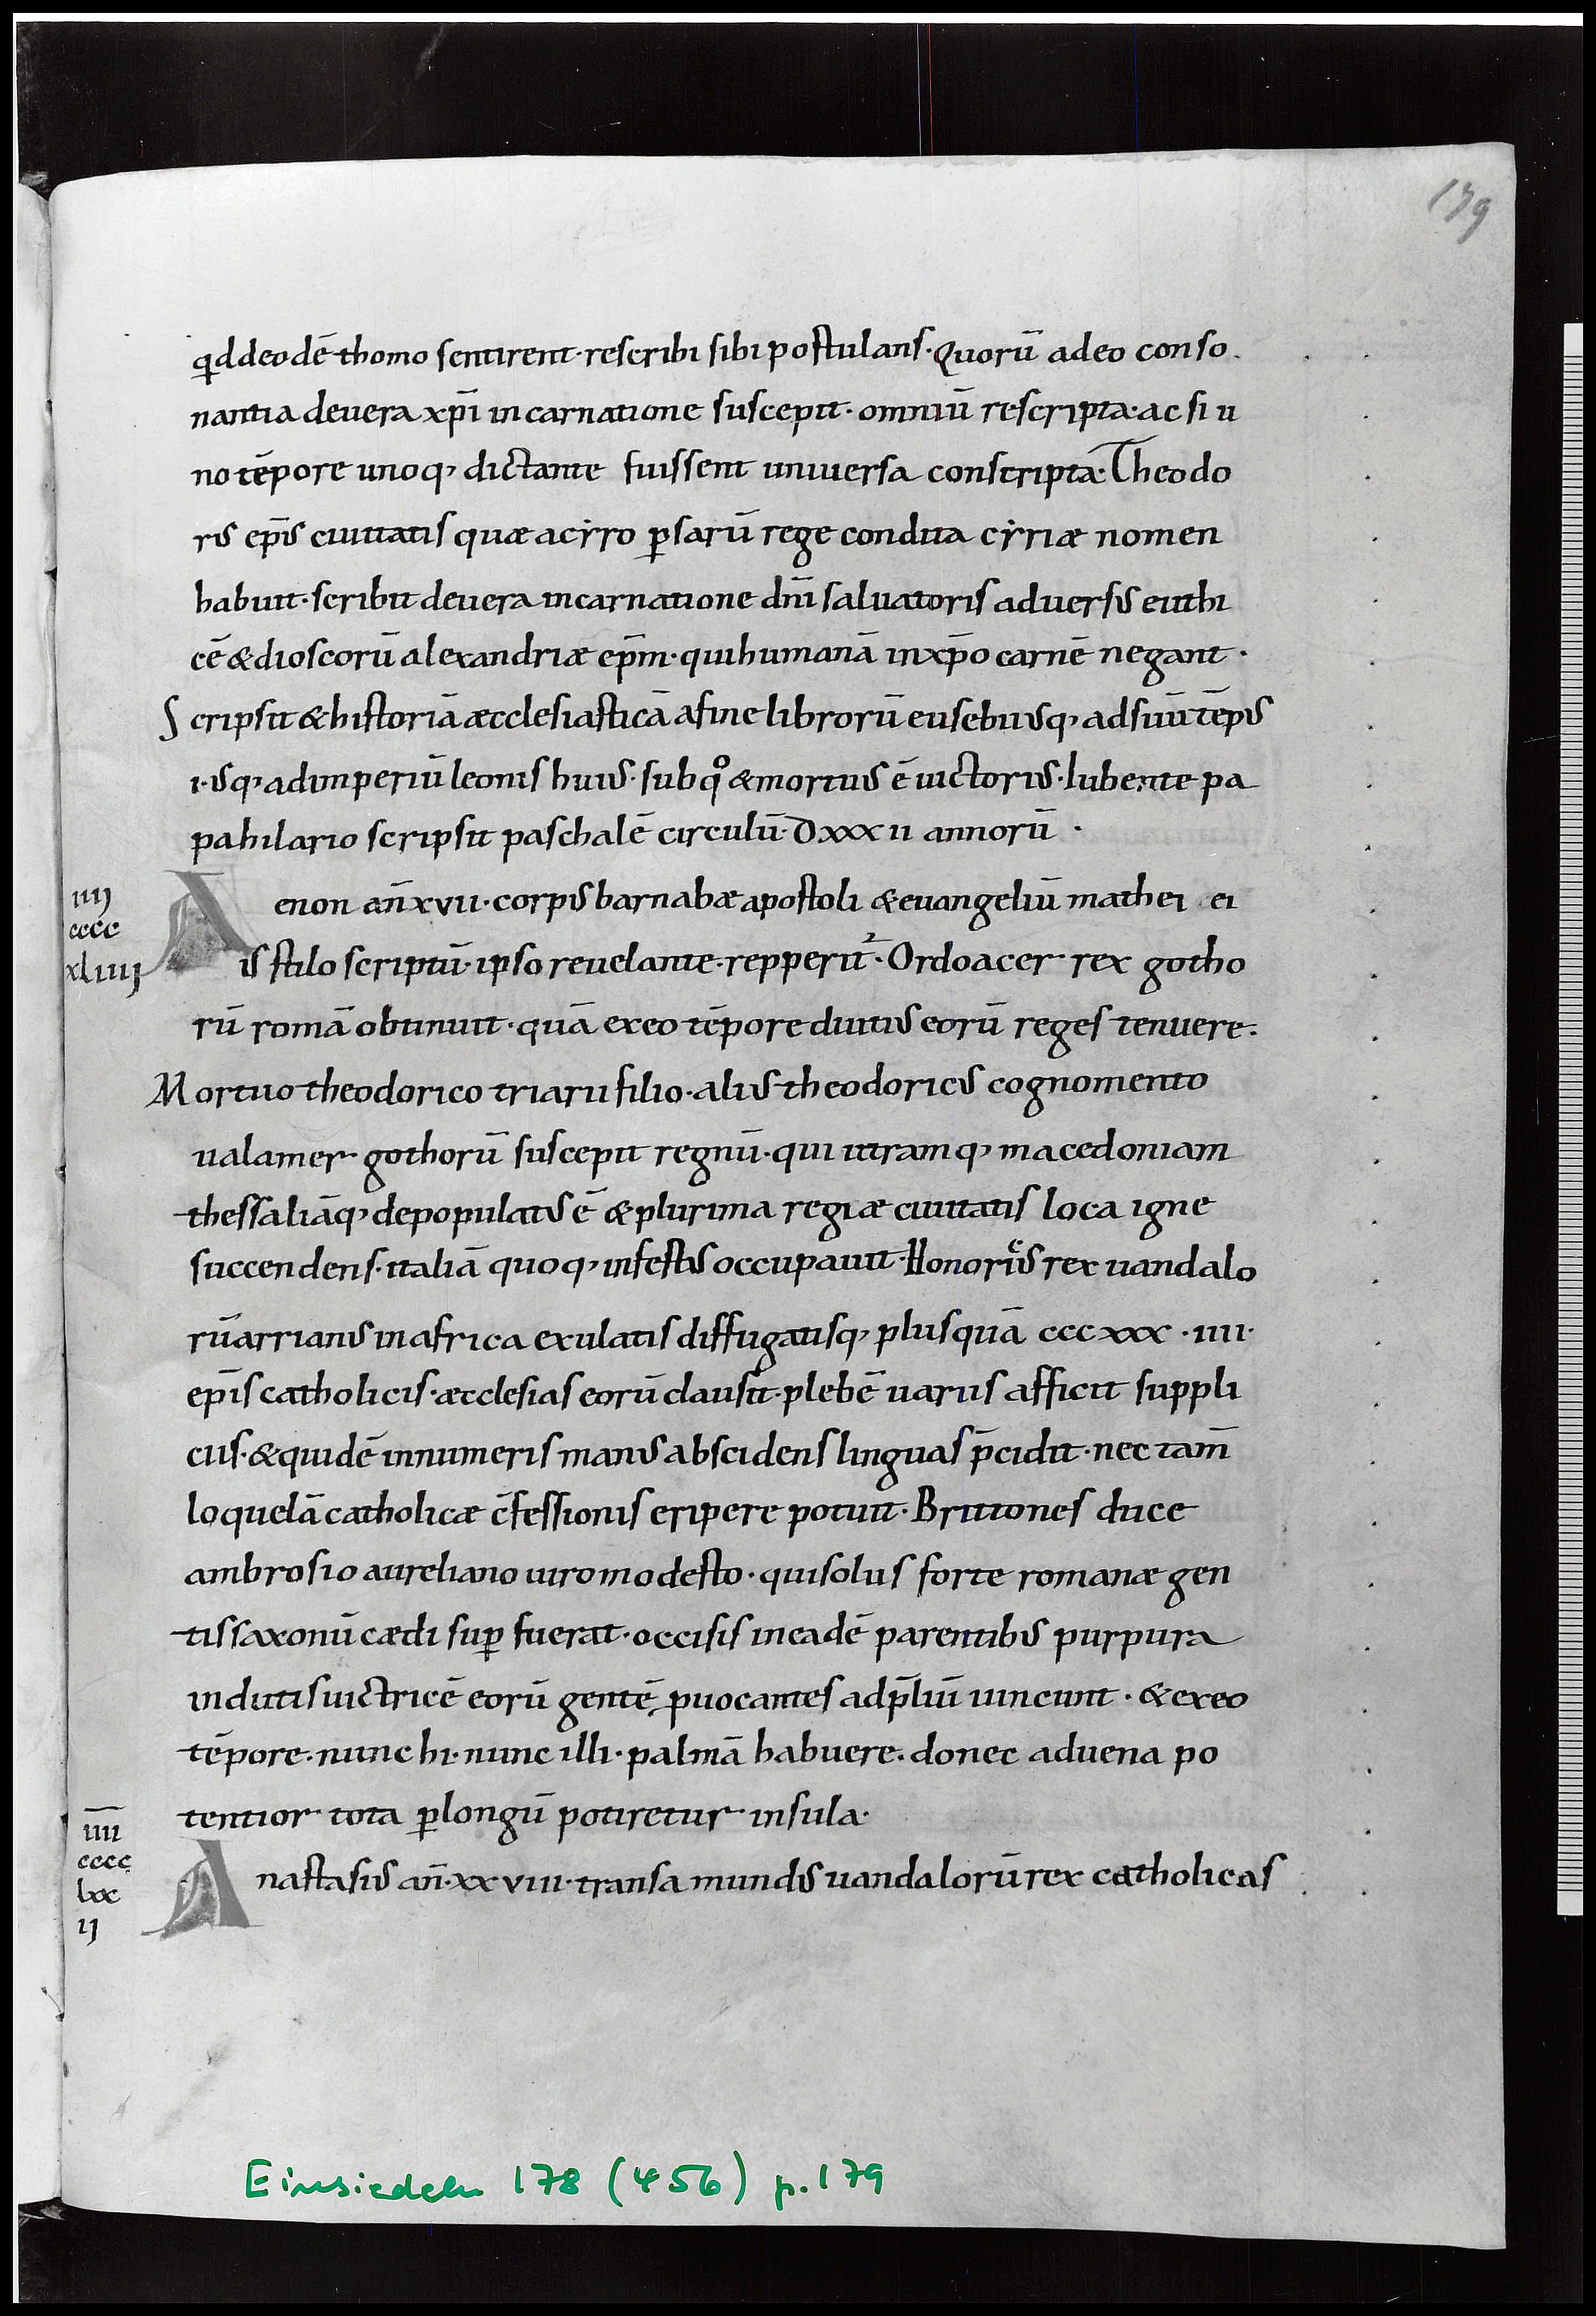 179
qd deodē thomo sentirent· rescribi sibi postulans· Quorū adeo conso
nantia deuera xp̄i incarnatione suscepit· omniū rescripta· ac si u
no tēpore unoq; dictante fuissent uniuersa conscripta· Theodo
rus ep̄s ciuitatis quæ acyro ꝑsarū rege condita cyriæ nomen
habuit· scribit deuera incarnatione dn̄i saluatoris aduersus euthi
cē & dioscorū alexandriæ ep̄m· qui humanā in xp̄o carnē negant·
Scripsit & historiā æcclesiasticā afine librorū eusebii usq; ad suū tēpus
i· usq; ad imperiū leonis huius· sub qo & mortuus ē uictorius· Iubente pa
pa hilario scripsit paschalē circulū· Dxxxii annorū·
iiij
cccc
xliiij
enon an̄ xvii· corpus barnabæ apostoli & euangeliū mathei ei
us stilo scriptū· ipso reuelante· repperit· Ordoacer rex gotho
rū romā obtinuit· quā exeo tēpore diutius eorū reges tenuere·
Mortuo theodorico triarii filio· alius theodoricus cognomento
ualamer gothorū suscepit regnū· qui utramq; macedoniam
thessaliāq; depopulatus ē & plurima regiæ ciuitatis loca igne
succendens· italiā quoq; infestus occupauit· Honoricus rex uandalo
rū arrianus in africa exulatis diffugatisq; plusquā cccxxx·iiii·
ep̄is catholicis· æcclesias eorū clausit· plebē uariis afficit suppli
ciis· & quidē innumeris manus abscidens linguas p̄cidit· nec tam̄
loquelā catholicæ c̄fessionis eripere potuit· Brittones duce
ambrosio aureliano uiro modesto· qui solus forte romanæ gen
tis saxonū cædi suꝑ fuerat· occisis ineadē parentibus purpura
indutis uictricē eorū gentē ꝓuocantes adp̄liū uincunt· & exeo
tēpore· nunc hi· nunc illi· palmā habuere· donec aduena po
tentior tota ꝑ longū potiretur insula·
iiii
cccc
lxx
ij
Anastasius an̄·xxviii· transamundus uandalorū rex catholicas
Einsiedeln 178 (456) p. 179